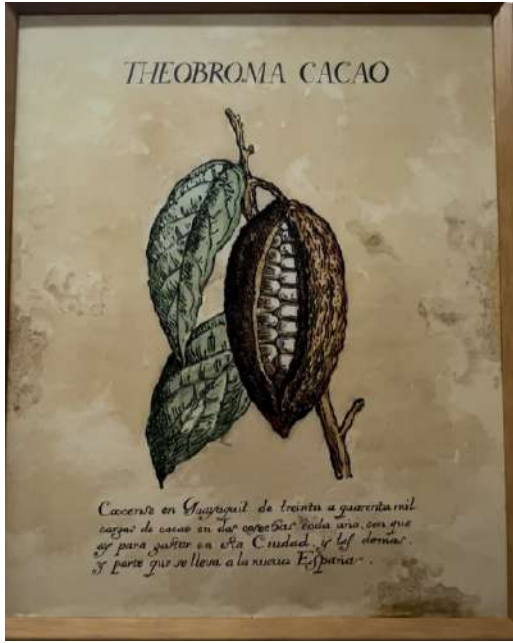 THEOBROMA CACAO
Coocense en Guayaquil de treinta a quarenta mil
cargas de cacao en dos cosechas cada ano, con que
ay para gastar en sta Ciudad, y les demas,
y parte que se lleva a la nueua España.